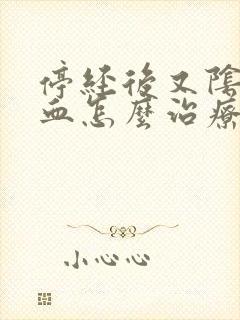 停經後又陰
血怎麼治療
小心心